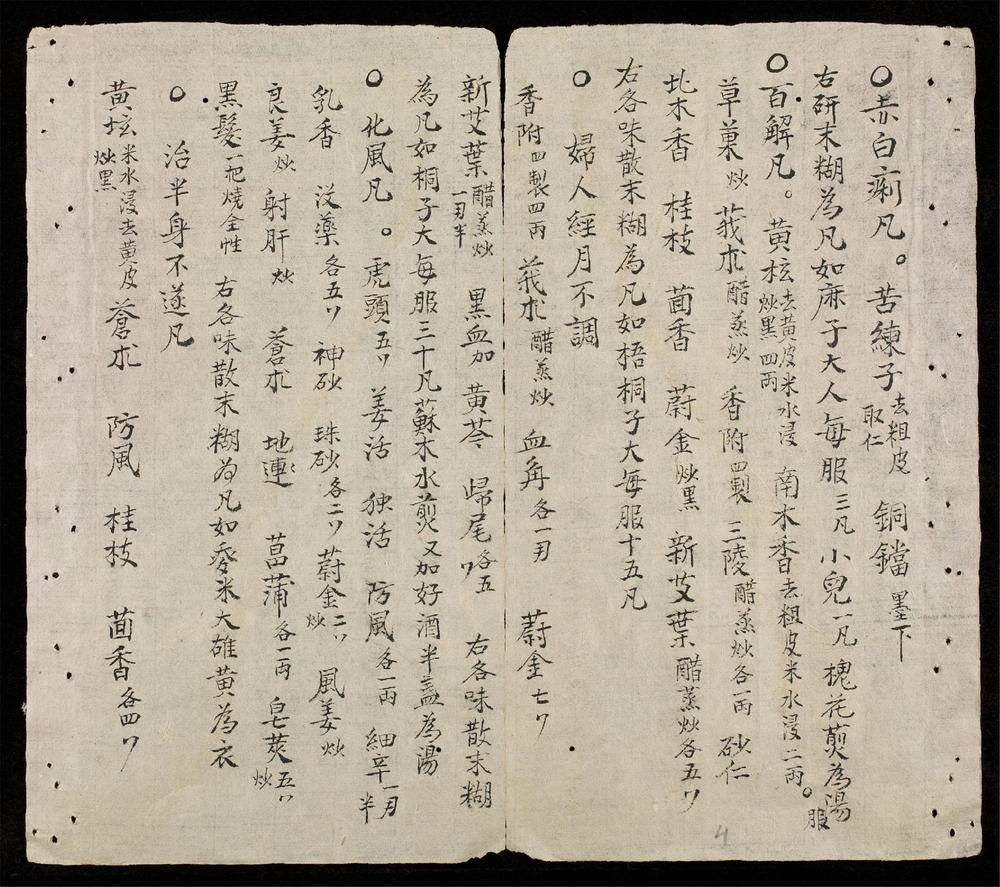 〇赤白痢凡。苦練子去粗皮取仁 銅鐺墨下
右研末糊為凡如麻子大人每服三凡小兒一凡槐花煎為湯服
〇百解凡。黄柭去黄皮米水浸炒黑四兩 南木香去粗皮米水浸二兩。
草菓炒 莪朮醋蒸炒 香附四製 三陵醋蒸炒各一兩 砂仁
北木香 桂枝 茴香 蔚金炒黑 新艾葉醋蒸炒各五
右各味散末糊為凡如梧桐子大每服十五凡
〇婦人經月不調
香附四製四兩 莪朮醋蒸炒 血角各一 蔚金七
新艾葉醋蒸炒一半 黒血加 黄芩 歸尾各五 右各味散末糊
為凡如桐子大每服三十凡蘇木水煎又加好酒半盞為湯
〇化風凡。虎頭五 姜活 独活 防風各一兩 細辛一半
乳香 没藥各五 神砂 珠砂各二 蔚金二炒 風姜炒
良姜炒 射肝炒 蒼朮 地連 菖蒲各一兩 皂莢五炒
黒髮一把燒全性 右各味散末糊為凡如麥米大雄黄為衣
〇治半身不遂凡
黄柭米水浸去黄皮炒黑 蒼朮 防風 桂枝 茴香各四
4